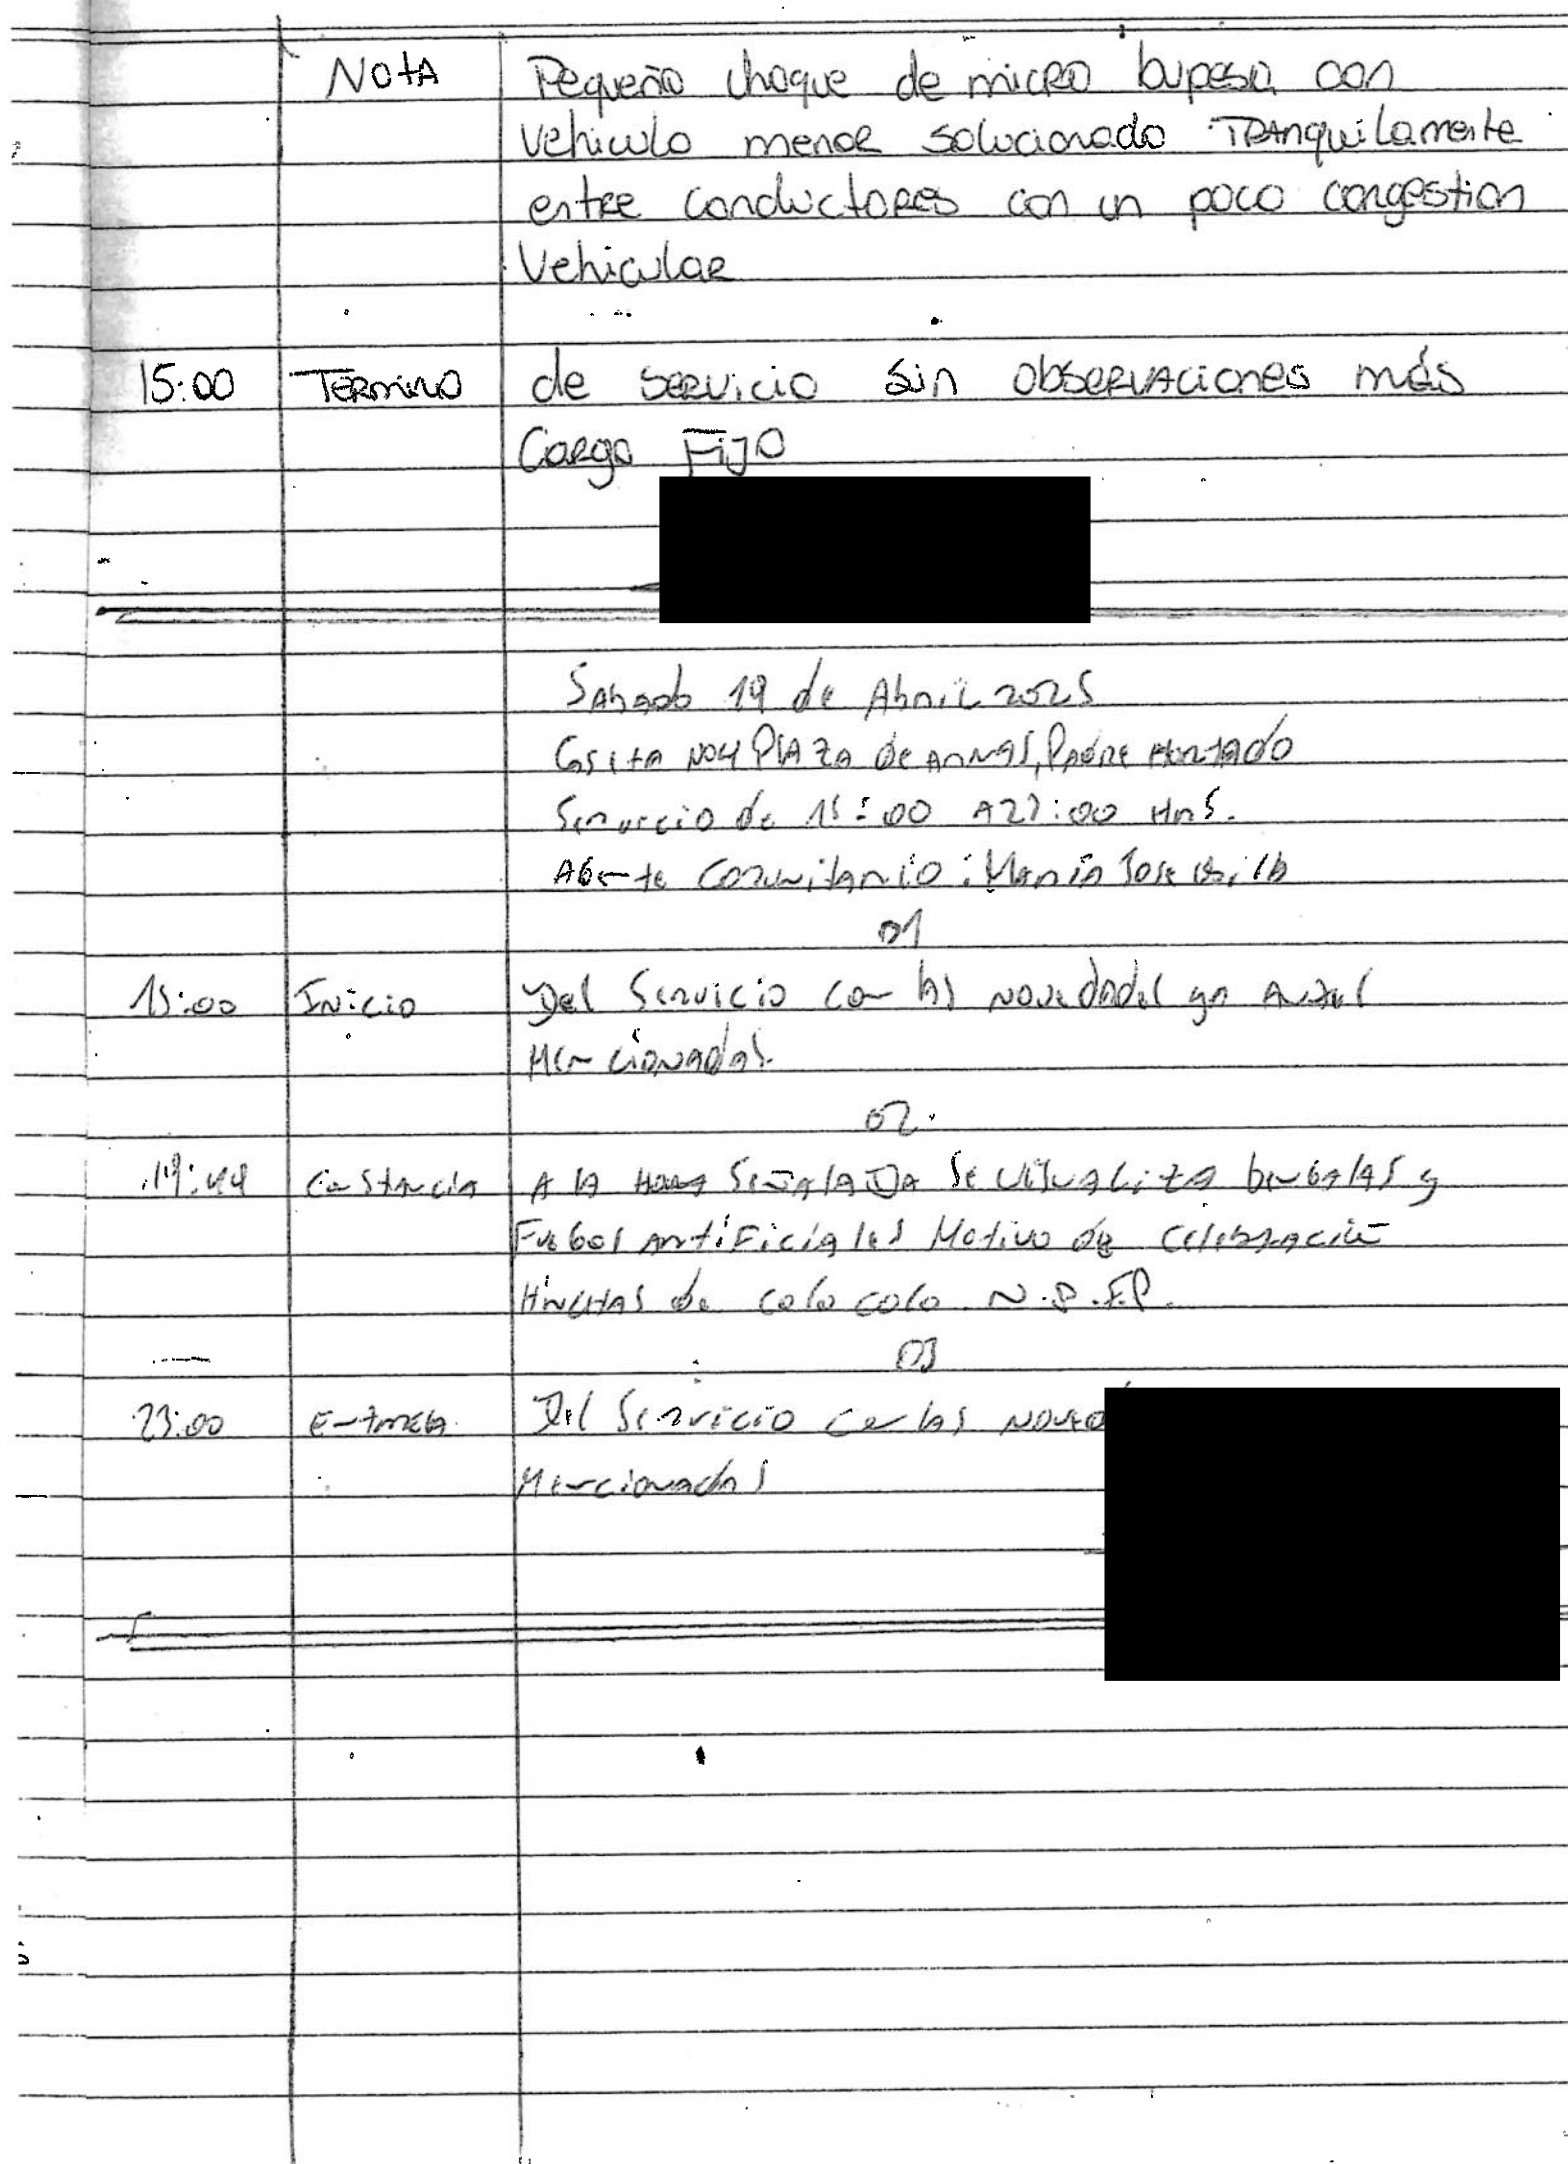 NOTA Pequeño choque de micro bupesa con
vehiculo menor solucionado Tranquilamente
entre conductores con un poco congestion
Vehicular
15:00 Termino de servicio sin observaciones más
Cargo Fijo
Sabado 19 de Abril 2025
Casita Nº4 Plaza de Armas, Padre Hurtado
Servicio de 15:00 A 23:00 Hrs.
Agente Comunitario: Maria Jose
01
15:00 Inicio Del Servicio con las novedades ya antes
Mencionadas.
02.
19:44 Constancia A la Hora Señalada Se visualiza bengalas y
Fuegos Artificiales Motivo de Celebración
Hinchas de colo colo N.
03
23:00 Entrega Del Servicio con las
Mencionadas